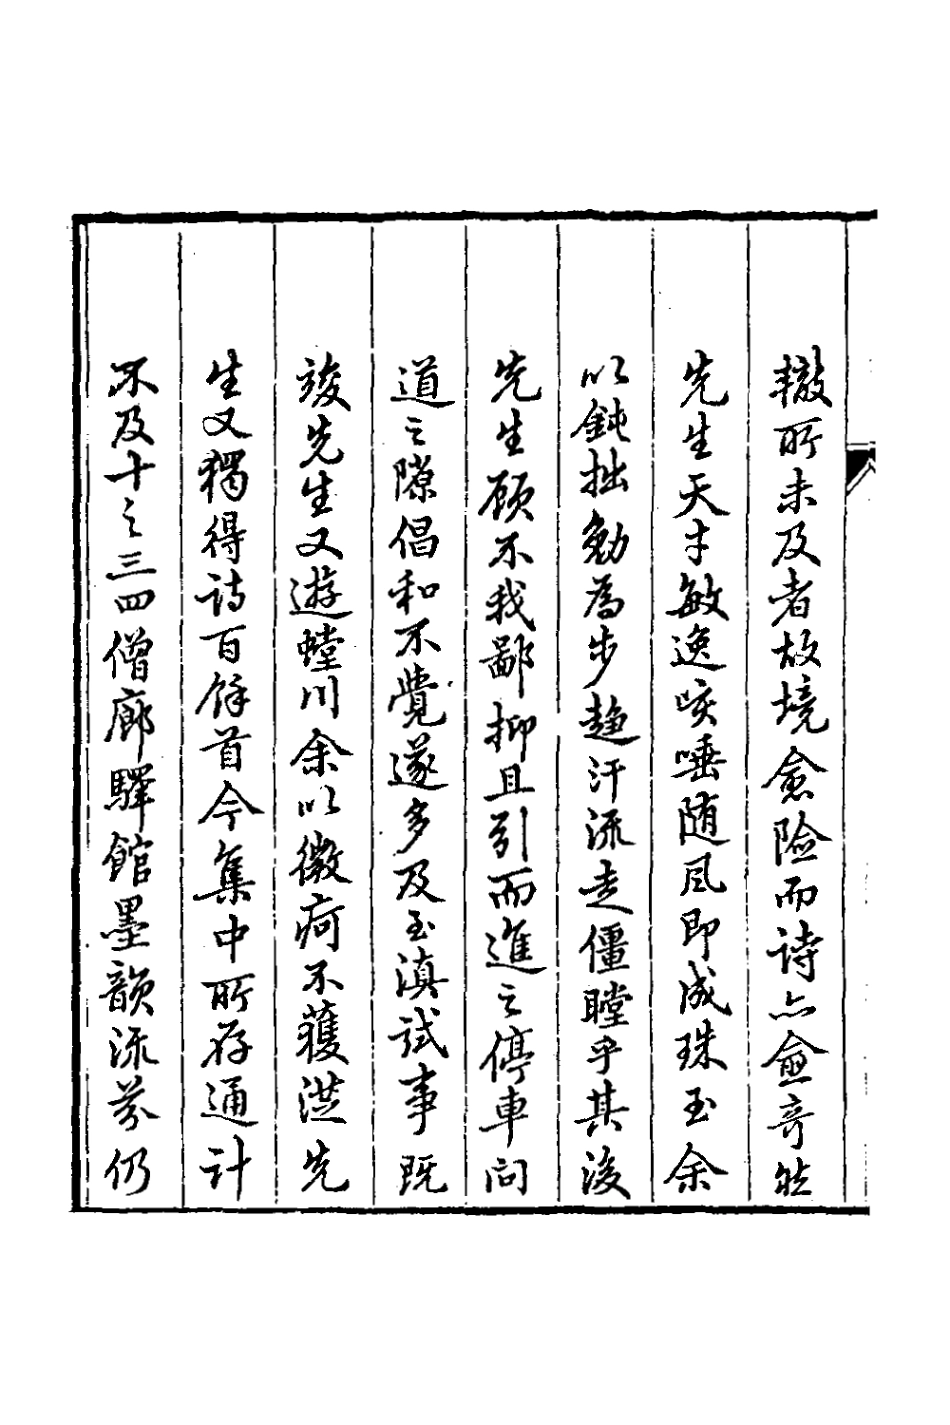 轍所未及者故境愈險而诗亦愈奇然
先生天才敏逸咳唾随风即成珠玉余
以鈍拙勉為步趋汗流走僵瞠乎其後
先生顧不我鄙抑且引而進之停車问
道之隙倡和不覺遂多及至滇試事既
竣先生又遊螳川余以微疴不獲從先
生又獨得诗百餘首今集中所存通计
不及十之三四僧廊驛館墨韻流芬仍